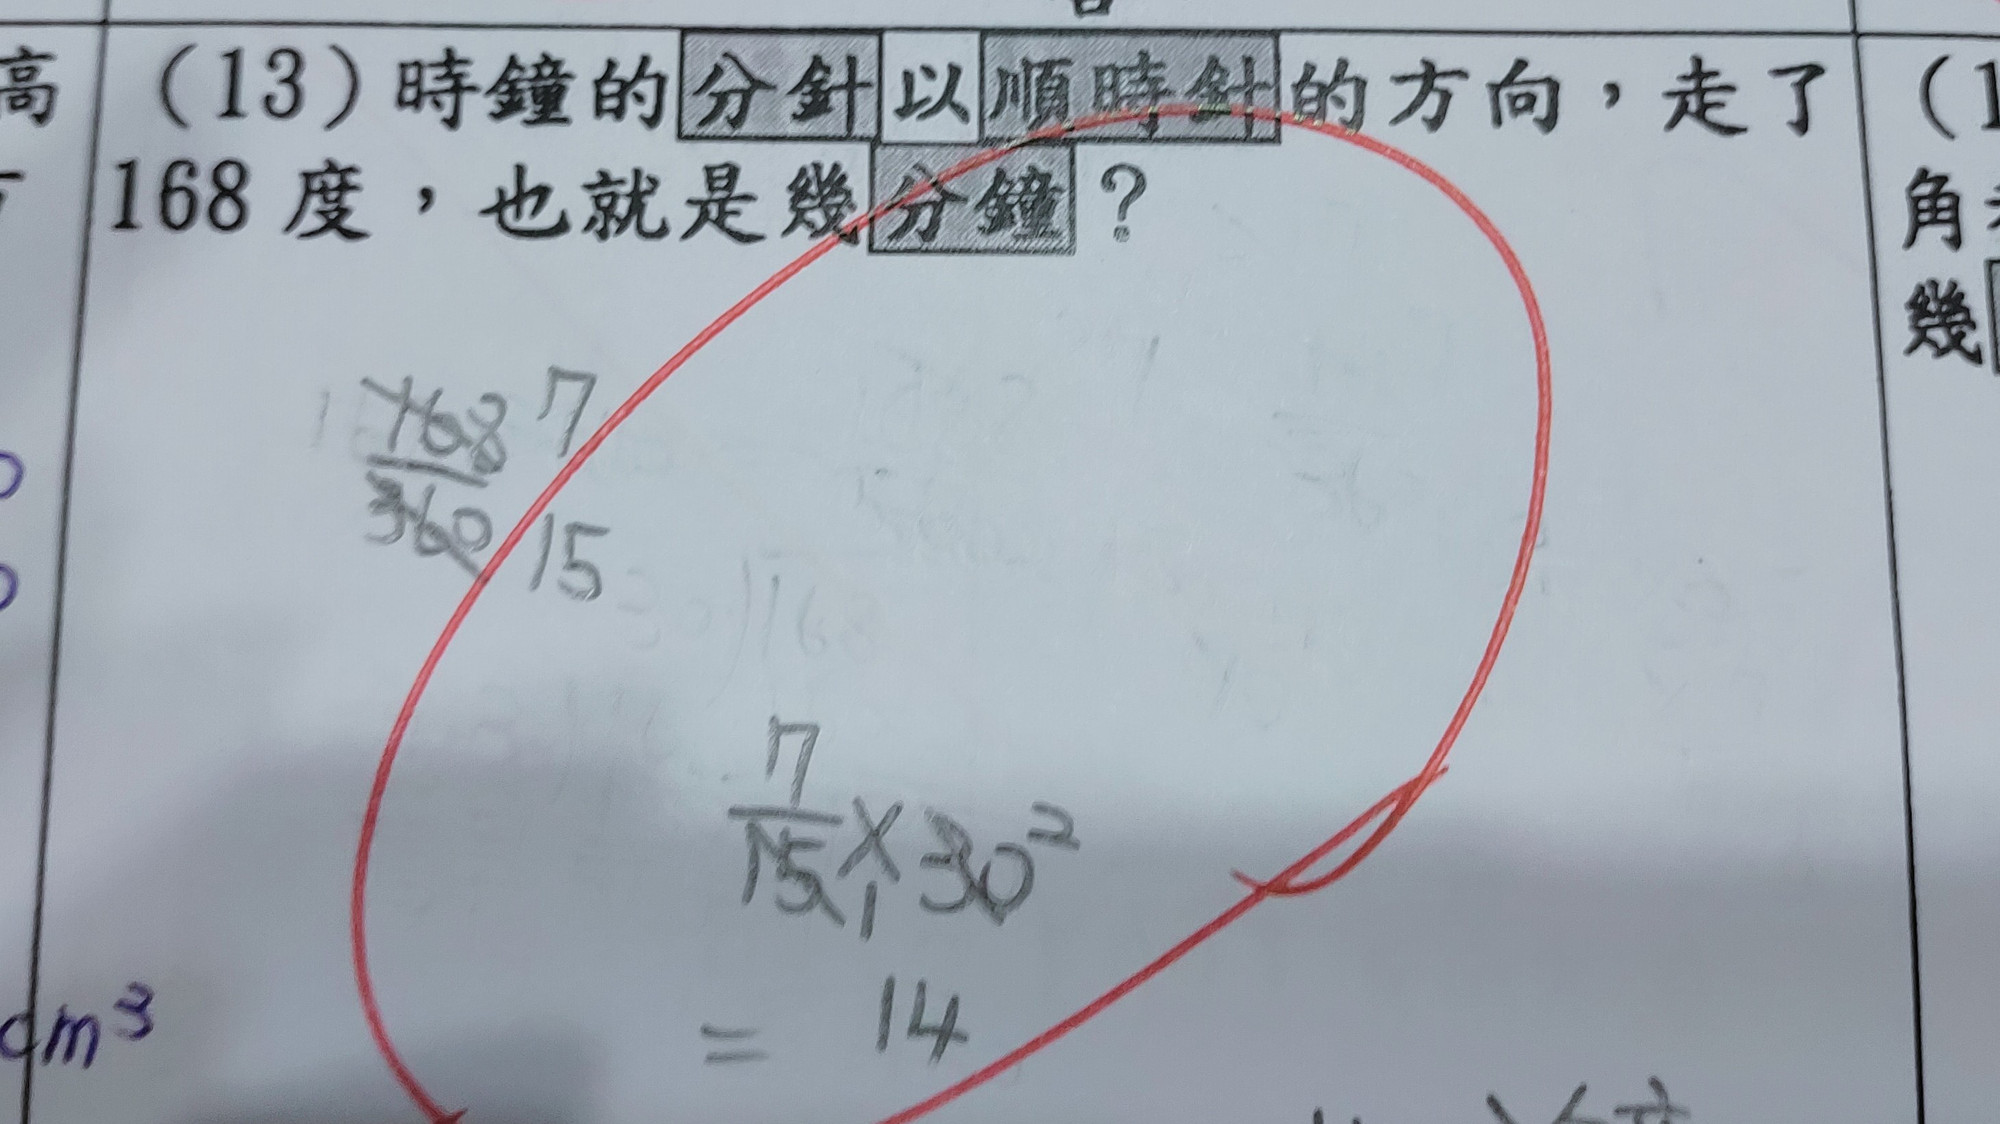 高
（13）時鐘的分針以順時針的方向，走了
168 度，也就是幾分鐘？
（1
角
幾
168 7
360 15
30）168
7
15 × 30 2
1
= 14
cm³